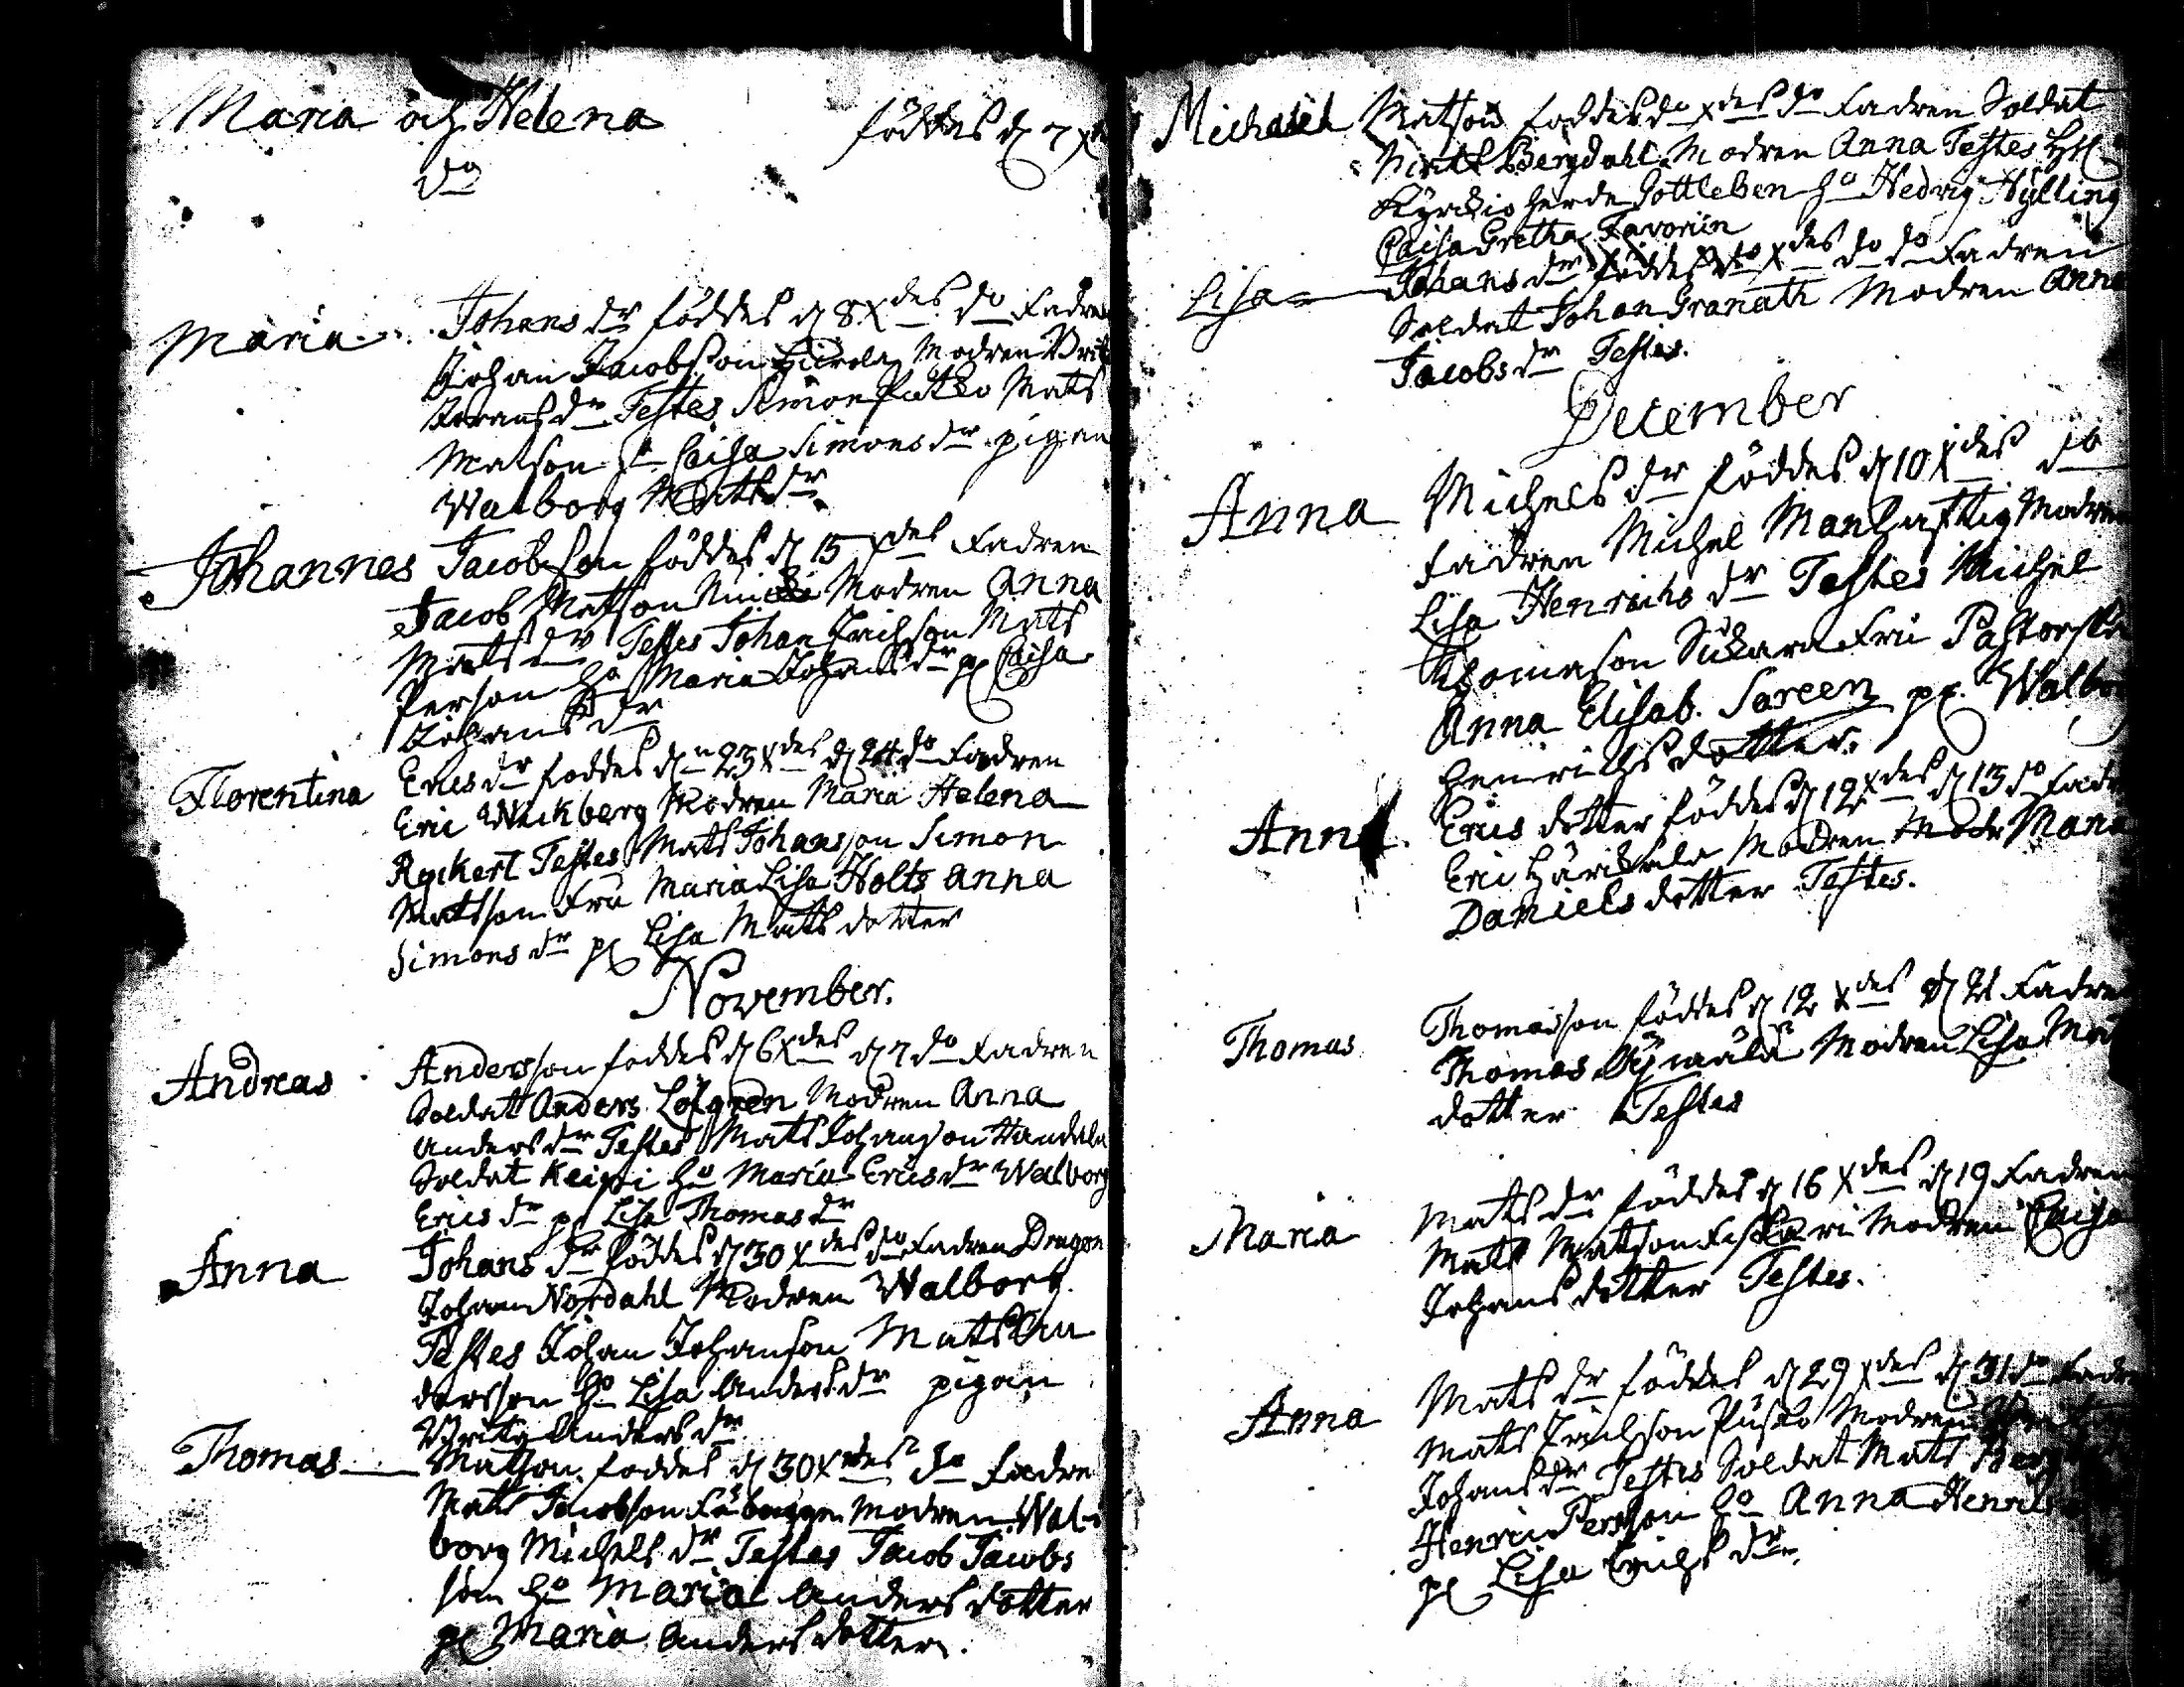 Maria och Helena föddes d 7
do
Maria Johans dr föddes d 8 Xdes do Fadren
Johan Jacobsson Modren
dr Testes Simon Mats
Matson ho Caisa Simons dr pigan
Walborg Mats dr
Johannes Jacobson föddes d 15 Xdes Fadren
Jacob Matson Modren Anna
Mats dr Testes Johan Erichson Mats
Person ho Maria Johans dr pg Caisa
Johans dr
Florentina Erics dr föddes dn 23 Xdes d 24 do Fadren
Eric Wickberg Modren Maria Helena
Ryckert Testes Mats Johansson Simon
Mattson Fru Maria Lisa Holts Anna
Simons dr pg Lisa Mats dotter
November.
Andreas Andersson föddes d 6 Xdes d 7 do Fadren
Soldat Anders Löfgren Modren Anna
Anders dr Testes Mats Johanson
Soldat Keippi ho Maria Erics dr Walborg
Erics dr pg Lisa Thomas dr
Anna Johans dr föddes d 30 Xdes do Fadren Dragon
Johan Nordahl Modren Walborg.
Testes Johan Johanson Mats An
dersson ho Lisa Anders dr pigan
Brita Anders dr
Thomas Matson föddes d 30 Xdes do Fadre
Mats Jacobson Modren Wal-
borg Michels dr Testes Jacob Jacobs
son ho Maria Anders dotter
pg Maria Anders dotter.
Michael Matson föddes do Xdes do Fadren Soldat
Matts Bergdahl Modren Anna Testes
Kyrckio herde Gottleben ho Hedvig Hylling
Caisa Gretha Favorin
Lisa Johans dr föddes do Xdes do do Fadren
Soldat Johan Granath Modren Anna
Jacobs dr Testes.
December
Anna Michels dr föddes d 10 Xdes do
Fadren Michel Manhaftig Modren
Lisa Henrichs dr Testes Michel
Thomason Fru Pastorska
Anna Elisab. Sareen pg. Walborg
Henrichs dotter.
Anna. Erics dotter föddes d 12 Xdes d 13 do Fadr
Eric Modren
Daniels dotter Testes.
Thomas Thomasson föddes d 12 Xdes d Fadren
Thomas Modren Lisa Mat
dotter Testes
Maria Mats dr föddes d 16 Xdes d 19 Fadren
Mats Matson Modren Caisa
Johans dotter Testes.
Anna Mats dr föddes d 29 Xdes d 31 do Fadr
Mats Erichson Modren
Johans dr Testes Soldat Mats
Henric Persson ho Anna
pg Lisa Erichs dr.